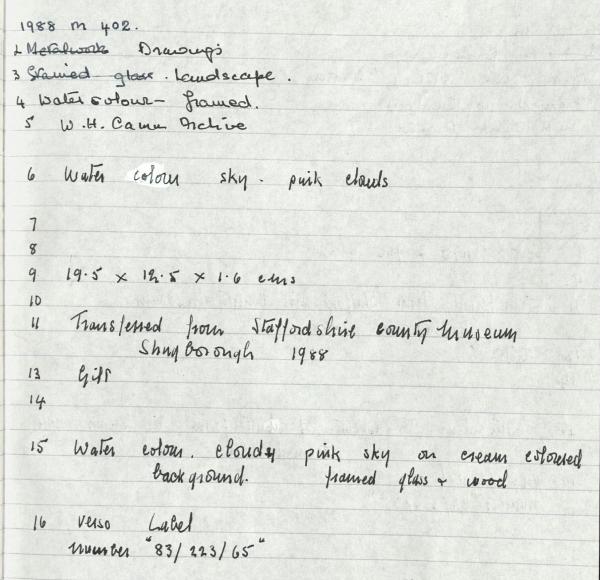 1988 M 402.
2 Metalwork Drawings
3 Stained glass. Landscape.
4 Water colour - framed.
5 W.H. Camm Archive
6 Water colour sky. pink clouds
7
8
9 19.5 x 12.5 x 1.6 cms
10
11 Transferred from Staffordshire County Museum
Shugborough 1988
13 Gift
14
15 Water colour. cloudy pink sky on cream coloured
background. framed glass + wood
16 Verso Label
number "83/223/65"